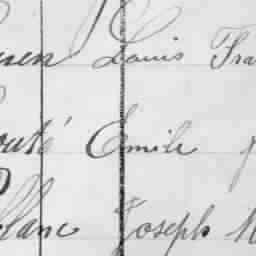 Louis Fra
outé Emile
llanc Joseph